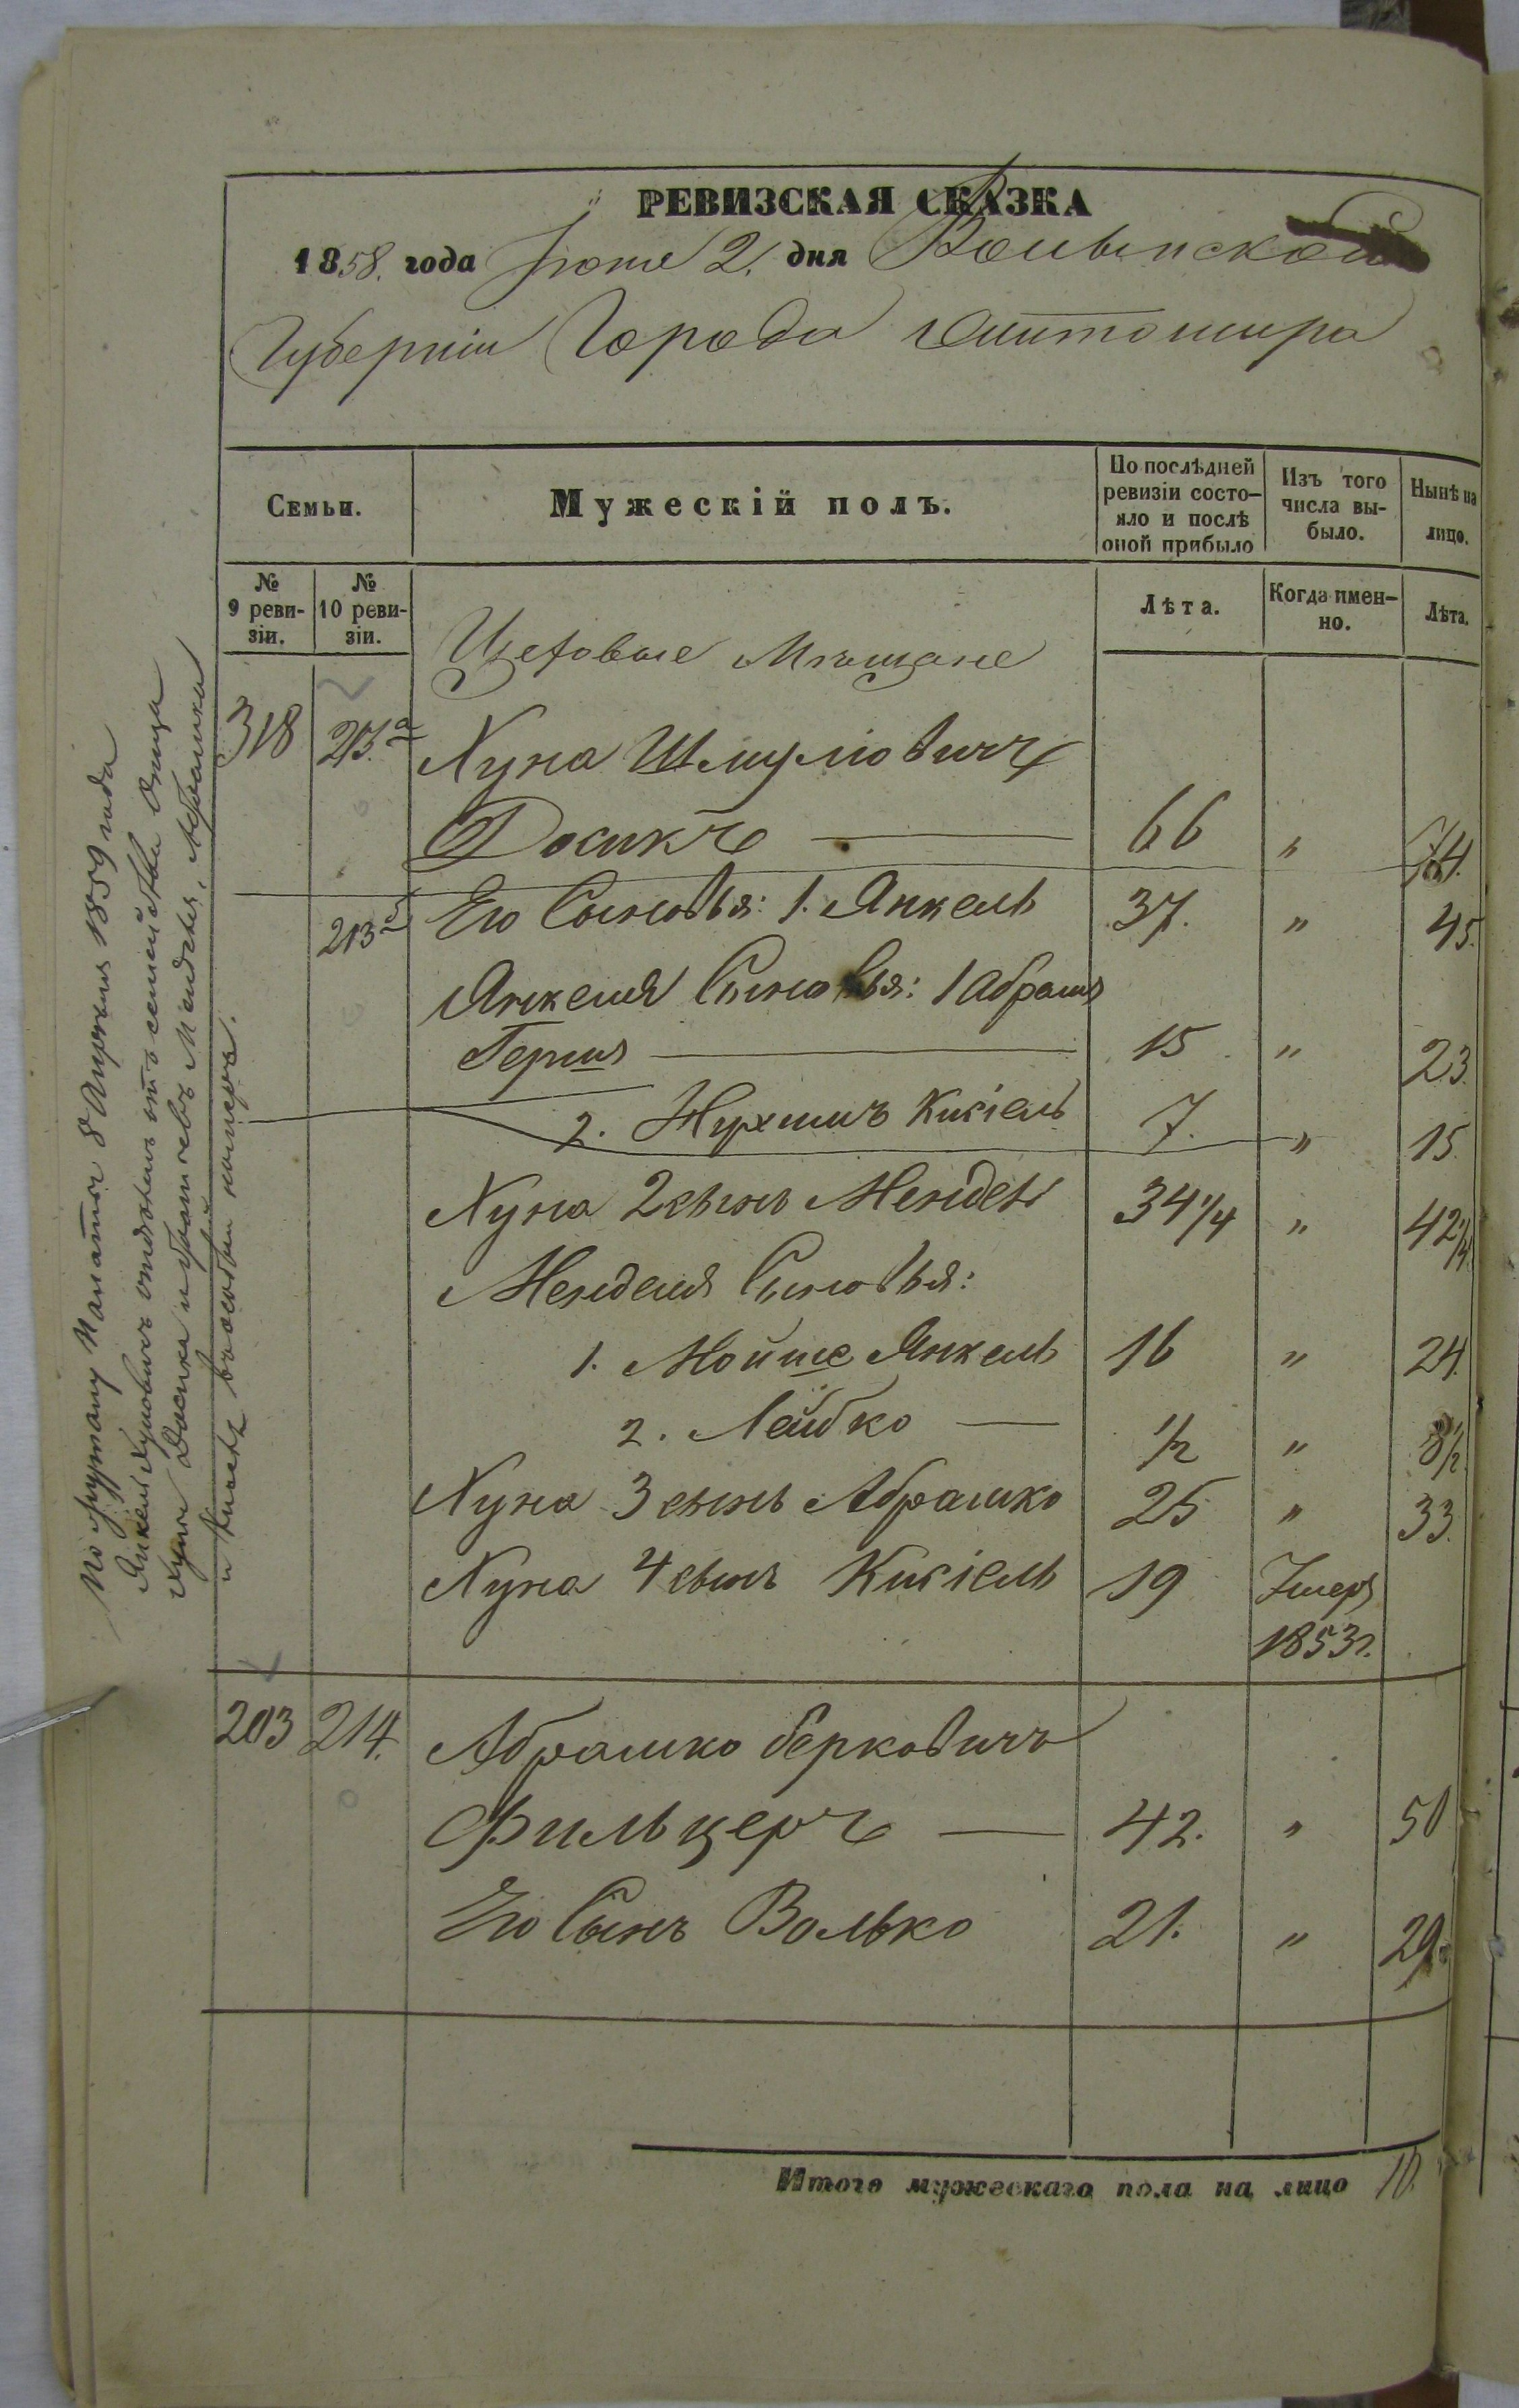 РЕВИЗСКАЯ СКАЗКА
1858. года Іюня 2. дня Волынской
Губерніи Города Житомира
Семьи.
Мужескій полъ.
По послѣдней ревизіи состо-
яло и послѣ
оной прибыло
Изъ того
числа вы-
было.
Нынѣ на
лицо.
№
9 реви-
зіи.
№
10 реви-
зіи.
Лѣта.
Когда имен-
но.
Лѣта.
Цеховые Мѣщане
318 213.а Хуна Шмулiовичъ
Досикъ — 66 " 74.
213б Его Сыновья: 1. Янкель 37. " 45.
Янкеля Сыновья: 1 Абрамъ
Гершъ — 15 " 23.
2. Нухимъ Кисіель 7. " 15.
Хуна 2 сынъ Мендель 34 1/4 " 42 1/4
Менделя Сыновья:
1. Мойше Янкель 16 " 24.
2. Лейбко — 1/2 " 8 1/2
Хуна 3 сынъ Абрашко 25 " 33.
Хуна 4 сынъ Кисіель 19 Умеръ
1853 г.
203 214. Абрашко Берковичъ
Фильцеръ — 42. " 50
Его Сынъ Волько 21. " 29.
Итого мужескаго пола на лицо 10.
По Палаты 8 Апрѣля 1859 года
Янкель Хуновичъ отъ семейства Отца
Хуны Досика и братьевъ Менделя, Абрашка
и Кисіеля въ особый номеръ.